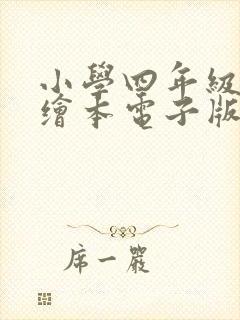 小學四年級
繪本電子版
席一嚴